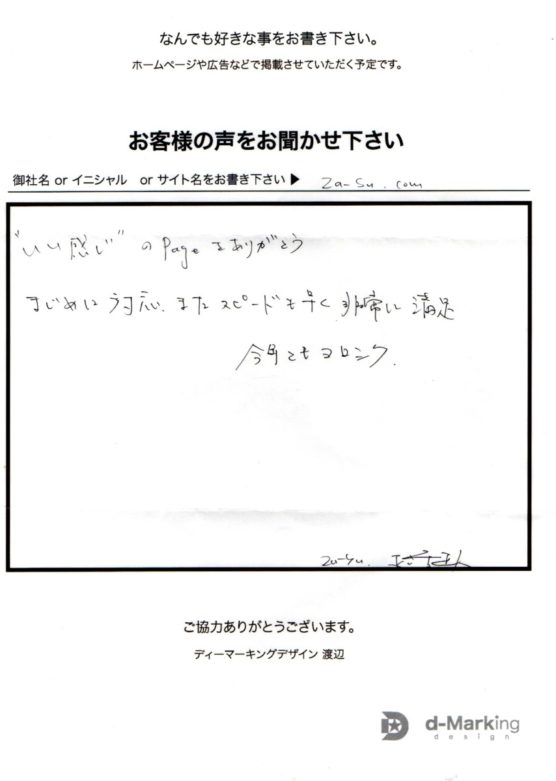 なんでも好きな事をお書き下さい。
ホームページや広告などで掲載させていただく予定です。
お客様の声をお聞かせ下さい
御社名 or イニシャル or サイト名をお書き下さい▶ Za-Su.com
"いい感じ" の Pageをありがとう
まじめに対応、またスピードも早く、非常に満足
今后ともヨロシク.
Za-Su.
ご協力ありがとうございます。
ディーマーキングデザイン 渡辺
d-Marking
design